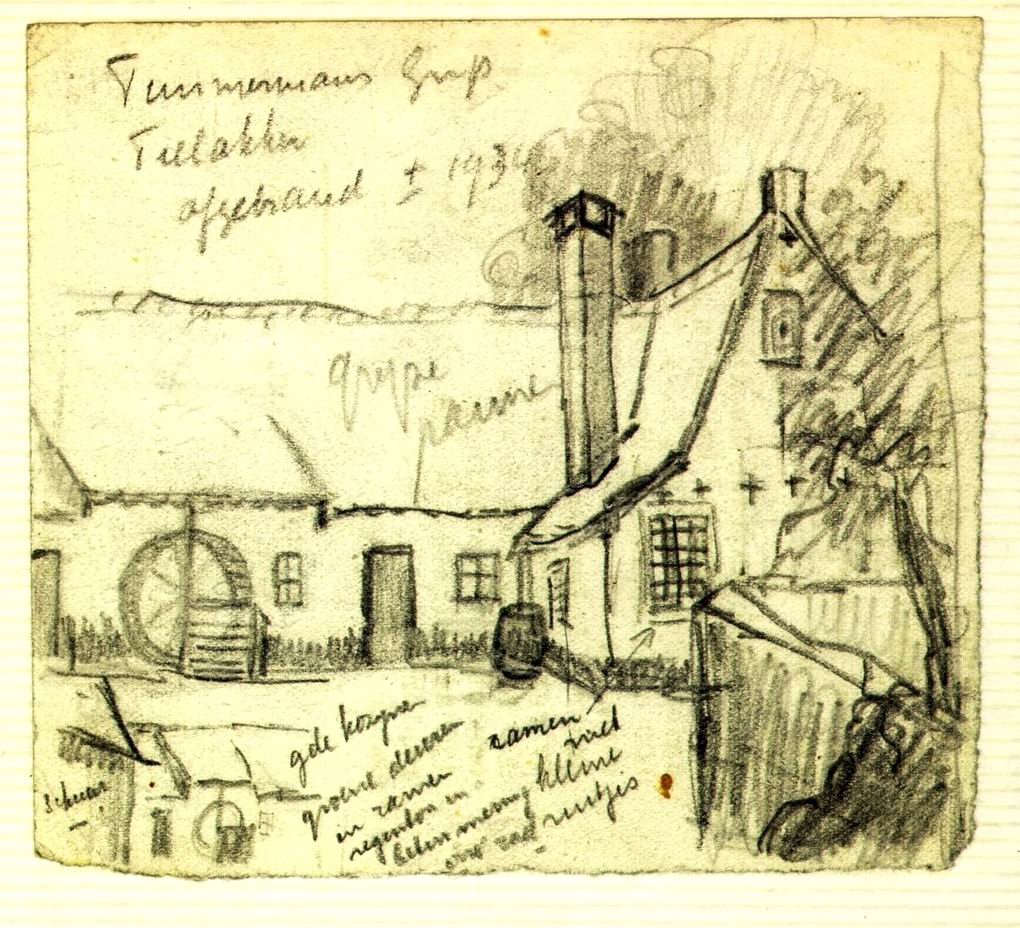 Timmermans Gys
Tillakker
afgebrand ± 1934
gryze
pannen
gele kozynen
groene deuren
en ramen
regenton en
ramen
met
kleine
ruitjes
schuur